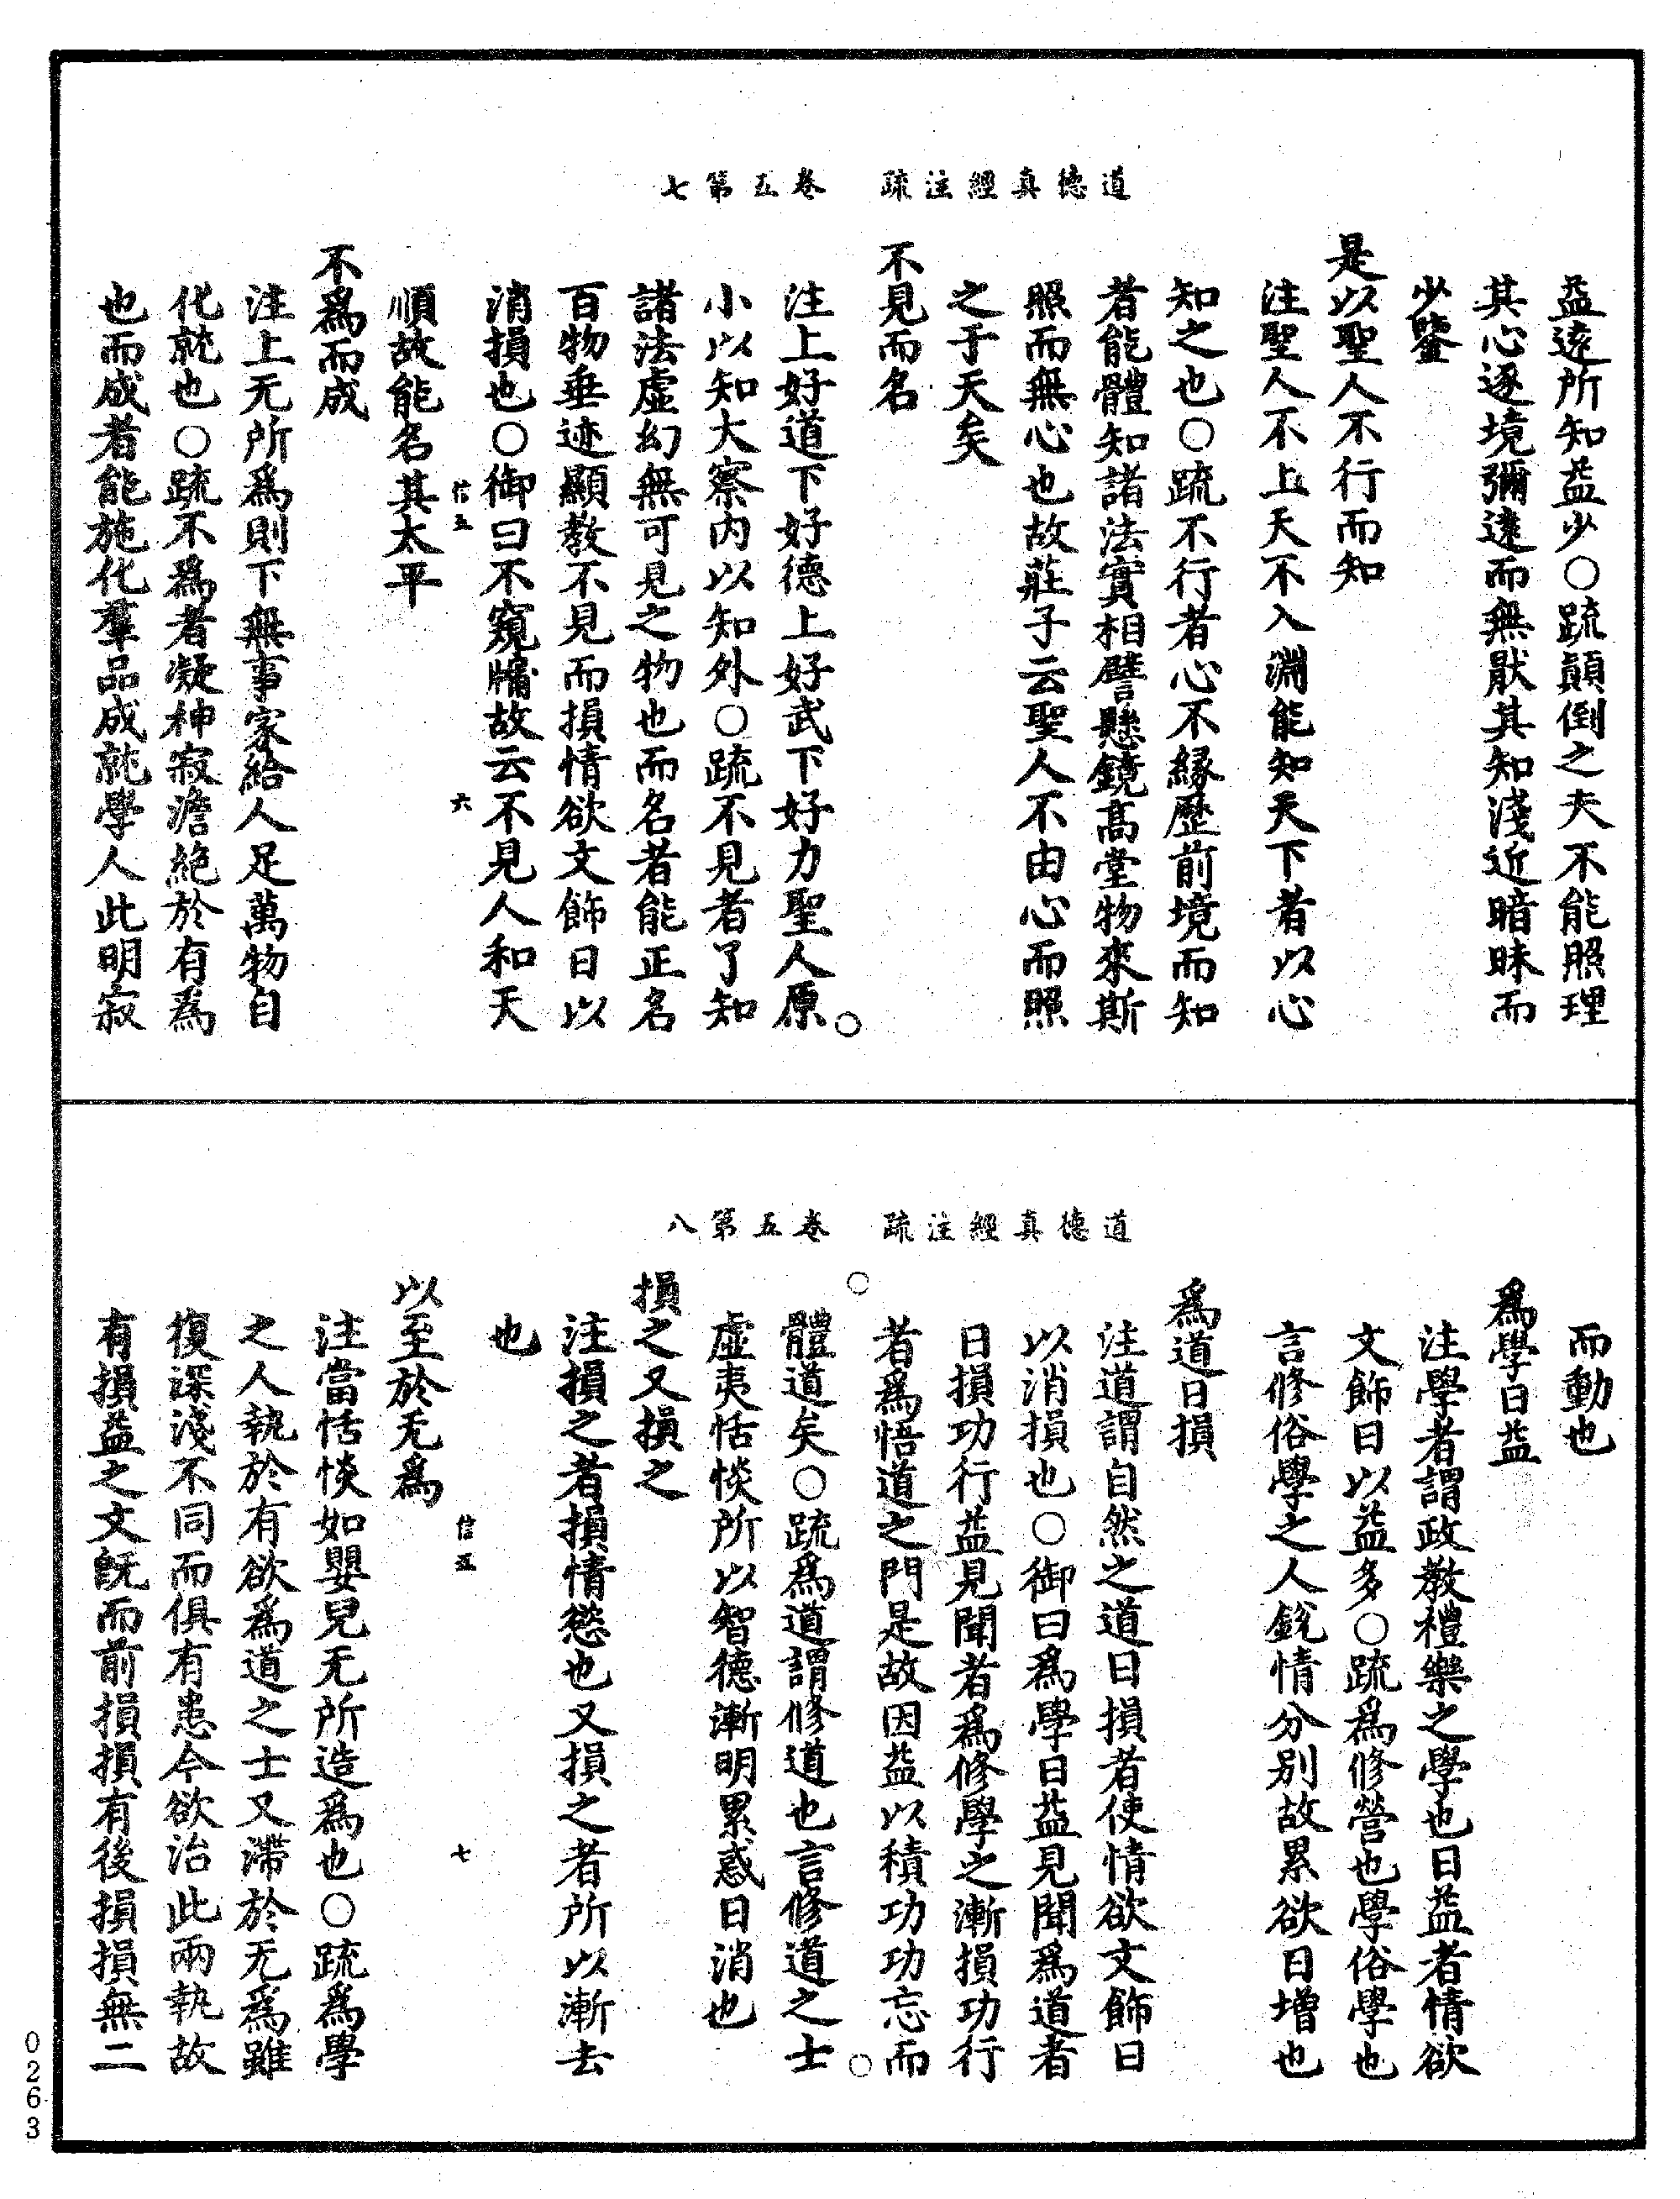 道德真經注疏　卷五第七
益遠所知益少○疏顛倒之夫不能照理
其心逐境彌遠而無猒其知淺近暗昧而
少鑒
是以聖人不行而知
注聖人不上天不入淵能知天下者以心
知之也○疏不行者心不緣歷前境而知
者能體知諸法實相譬懸鏡高堂物來斯
照而無心也故莊子云聖人不由心而照
之于天矣
不見而名
注上好道下好德上好武下好力聖人原
小以知大察內以知外○疏不見者了知
諸法虛幻無可見之物也而名者能正名
百物垂迹顯教不見而損情欲文飾日以
消損也○御曰不窺牖故云不見人和天
信五　六
順故能名其太平
不為而成
注上无所為則下無事家給人足萬物自
化就也○疏不為者凝神寂澹絕於有為
也而成者能施化羣品成就學人此明寂
道德真經注疏　卷五第八
而動也
為學日益
注學者謂政教禮樂之學也日益者情欲
文飾日以益多○疏為修營也學俗學也
言修俗學之人銳情分別故累欲日增也
為道日損
注道謂自然之道日損者使情欲文飾日
以消損也○御曰為學日益見聞為道者
日損功行益見聞者為修學之漸損功行
者為悟道之門是故因益以積功功忘而
體道矣○疏為道謂修道也言修道之士
虛夷恬惔所以智德漸明累惑日消也
損之又損之
注損之者損情慾也又損之者所以漸去
也
信五　七
以至於无為
注當恬惔如嬰兒无所造為也○疏為學
之人執於有欲為道之士又滯於无為雖
復深淺不同而俱有患今欲治此兩執故
有損益之文旣而前損損有後損損無二
0263